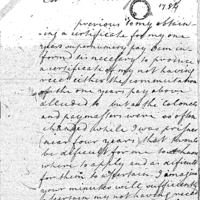 1784
previous to my obtain-
ing a certificate for my one
years supernumery pay been in-
formed is necessary to produce a
certificate of my not having
recd either the commutation
of the one years pay above
alluded to but as the Colonels
and paymasters were so often
changed while I was prisoner
(near four years) that would
be dificult for me to know
where to apply and as dificult
for them to assertain. I imagine
your minutes will sufficiently
my not having recd